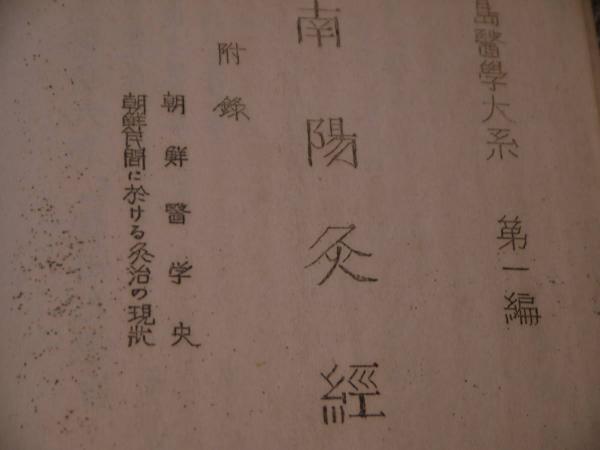 島醫學大系 第一編
南陽灸經
附錄
朝鮮醫学史
朝鮮民間に於ける灸治の現狀